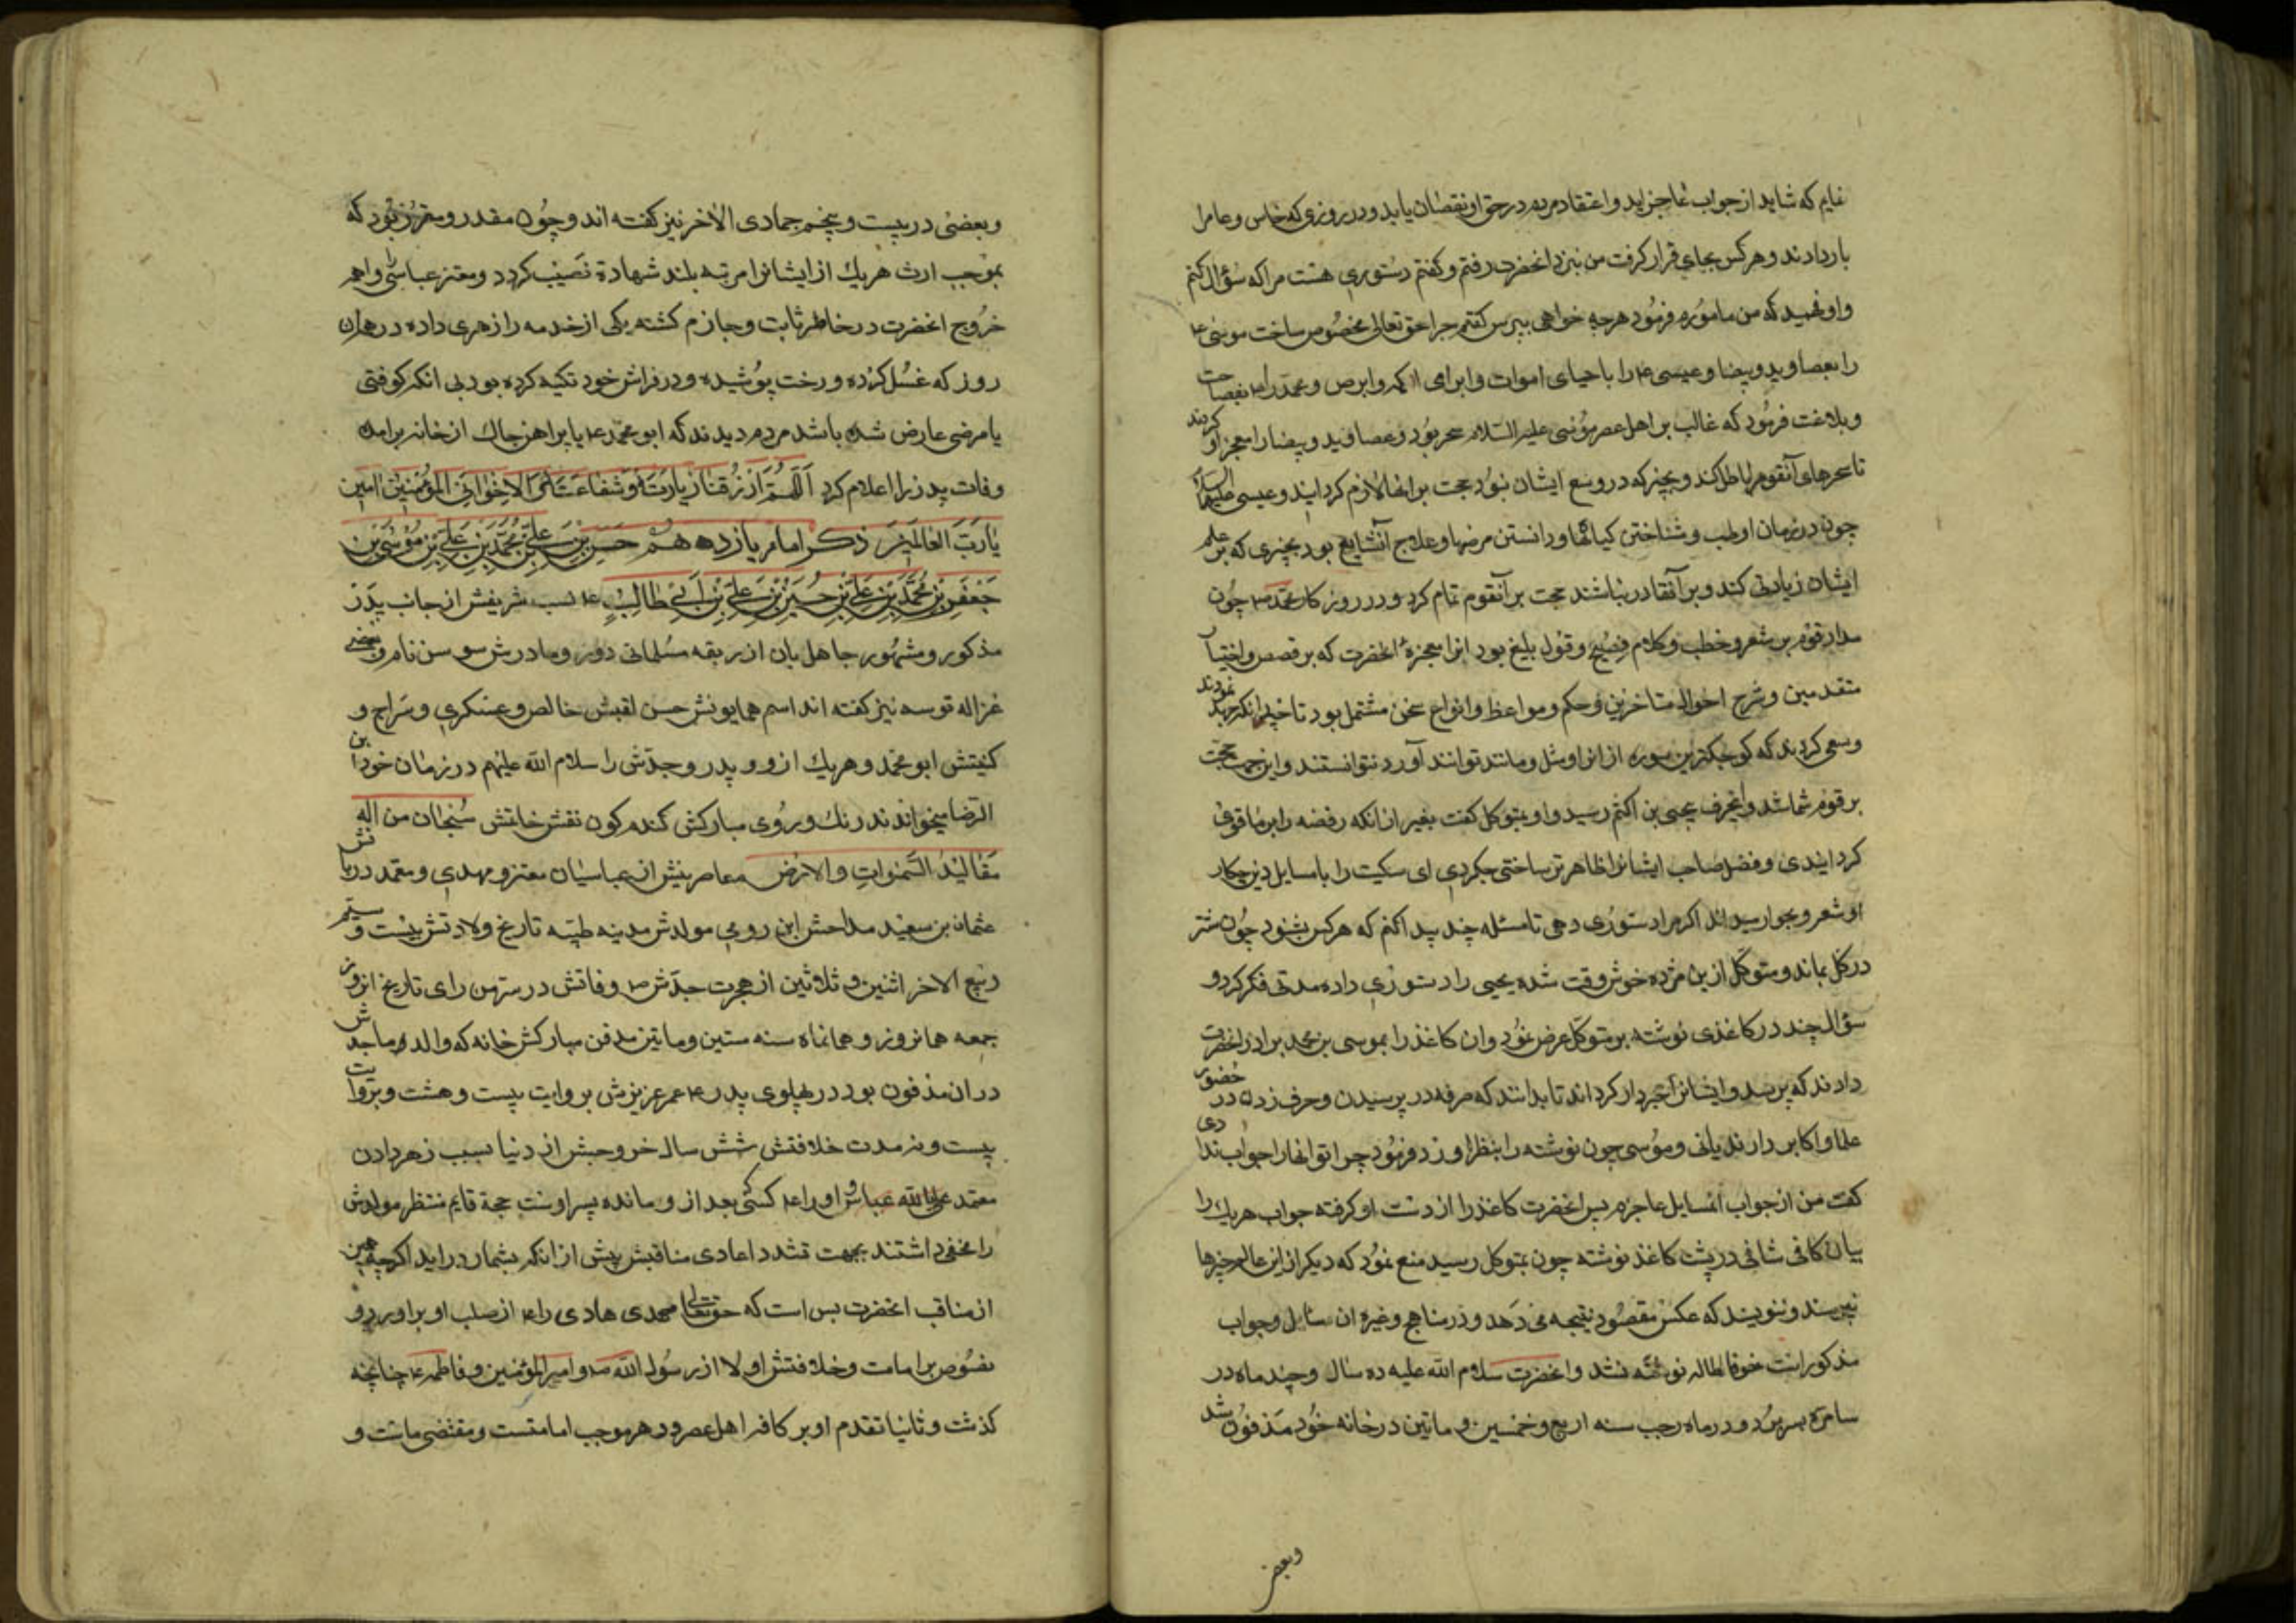 نمایم که شاید از جواب عاجز آید و اعتقاد مردم در حق او نقصان یابد و در روزی که خاص و عام را
بار دادند و هر کس بجای قرار گرفت من بنزد انحضرت رفتم و کفتم دستوری هست مرا که سؤال کنم
و او فهمید که من مامورم فرمود هرچه خواهی بپرس کفتم چرا حق تعالی مخصوص ساخت موسی ع
را بعصا و ید و بیضا و عیسی ع را باحیای اموات و ابرای اکمه و ابرص و محمد را ص بفصاحت
و بلاغت فرمود که غالب بر اهل عصر موسی علیه السلام سحر بود و عصا و ید و بیضا را معجز او کردند
تا سحرهای آنقوم را باطل کند و بچیز که در وسع ایشان نبود حجت بر انها لازم کرد ایند و عیسی علیه السلام
چون در زمان او طب و شناختن کیاهها و دانستن مرضها و علاج آنشایع بود بچیزی که بر علم
ایشان زیادتی کند و بر آنقادر نباشند حجت بر آنقوم تمام کرد و در روز کار محمد ص چون
مدار قوم بر شعر و خطب و کلام فصیح و قول بلیغ بود انرا معجزهٔ انحضرت که بر قصص و اخبار
متقدمین و شرح احوال متاخرین و حکم و مواعظ و انواع سخن مشتمل بود تا خیلی انکر جهد نمودند
و سعی کردند که کوچکترین سوره از انرا مثل و مانند توانند آورد نتوانستند و این حجت
بر قوم شما شد و اینحرف بیحیی بن اکثم رسید و او بمتوکل کفت بغیر از انکه رفضه را بر ما قوی
کرد ایندی و فضل صاحب ایشانرا ظاهرتر ساختی چکردی ای سکیت را با مسایل دین چکار
او شعر و نحو را میداند اکر مرا دستوری دهی تا مسئله چند پیدا کنم که هر کس بشنود چون شتر
در کل بماند و متوکل ازین مژده خوش وقت شده یحیی را دستوری داده مدتی فکر کرد و
سؤال چند در کاغذی نوشته بر متوکل عرض نمود و ان کاغذ را بموسی بن محمد برادر انحضرت
دادند که پرسد و ایشانرا خبردار کرد اند تا بدانند که صرفه در پرسیدن و حرف زدن در حضور
علما و اکابر دارند یانی و موسی چون نوشته را بنظر او زد فرمود چرا تو انها را جواب ندادی
کفت من از جواب انمسایل عاجزم پس انحضرت کاغذ را از دست او کرفته جواب هر یک را
بیان کافی شافی در پشت کاغذ نوشته چون بمتوکل رسید منع نمود که دیکر از این عالم چیزها
نپرسند و ننویسند که عکس مقصود نتیجه می دهد و در مناهج و غیره ان سائل و جواب
مذکور است خوفا لطاله نوشته نشد و انحضرت سلام الله علیه ده سال و چند ماه در
سامره بسر برد و در ماه رجب سنه اربع و خمسین و ماتین در خانه خود مدفون شد
وبعض
و بعضی در بیست و پنجم جمادی الاخر نیز کفته اند و چون مقدر و مقرر بود که
بموجب ارث هر یک از ایشانرا مرتبه بلند شهادة نصیب کردد و معتز عباسی را واهمه
خروج انحضرت در خاطر ثابت و جازم کشته یکی از خدمه را زهری داده در همان
روز که غسل کرده و رخت پوشیده و در فراش خود تکیه کرده بود بی انکه کوفتی
یا مرضی عارض شده باشد مردم دیدند که ابو محمد ع با پیراهن چاک از خانه برامده
وفات پدر را اعلام کرد اللهم ارزقنا زیارته و شفاعته الاخوانی المؤمنین امین
یا رب العالمین ذکر امام یازدهم حسن بن علی بن محمد بن علی بن موسی بن
جعفر بن محمد بن علی بن حسین بن علی بن ابی طالب ع نسب شریفش از جانب پدر
مذکور و مشهور جاهل بان از ربقه مسلمانی دور و مادرش سوسن نام و بعضی
غزاله قوسه نیز کفته اند اسم همایونش حسن لقبش خالص و عسکری و سراج و
کنیتش ابو محمد و هر یک ازو و پدر و جدش را سلام الله علیهم در زمان خود ابن
الرضا میخواندند رنک و روی مبارکش کندم کون نقش خاتمش سبحان من اله
مقالید السموات و الارض معاصرینش از عباسیان معتز و مهدی و معتمد دربانش
عثمان بن سعید مداحش ابن رومی مولدش مدینه طیبه تاریخ ولادتش بیست و سیم
ربیع الاخر اثنین و ثلاثین از هجرت جدش ص وفاتش در سرمن رای تاریخ انروز
جمعه همانروز و همانماه سنه ستین و ماتین مدفن مبارکش خانه که والد ماجدش
در ان مدفون بود در پهلوی پدر ع عمر عزیزش بروایت بیست و هشت و بروایت
بیست و نه مدت خلافتش شش سال خروجش از دنیا بسبب زهر دادن
معتمد علی الله عباسی او را ع کسی که بعد از و مانده پسر اوست حجة قایم منتظر مولدش
را مخفی داشتند بجهت تشدد اعادی مناقبش پیش از انکه بشمار در اید اکرچه همین
از مناقب انحضرت بس است که حق تعالی مهدی هادی را ع از صلب او براورد و
نصوص بر امامت و خلافتش اولا از رسول الله ص و امیر المؤمنین و فاطمه ع چنانچه
کذشت و ثانیا تقدم او بر کافه اهل عصر در هر موجب امامتست و مقتضی ماتت و